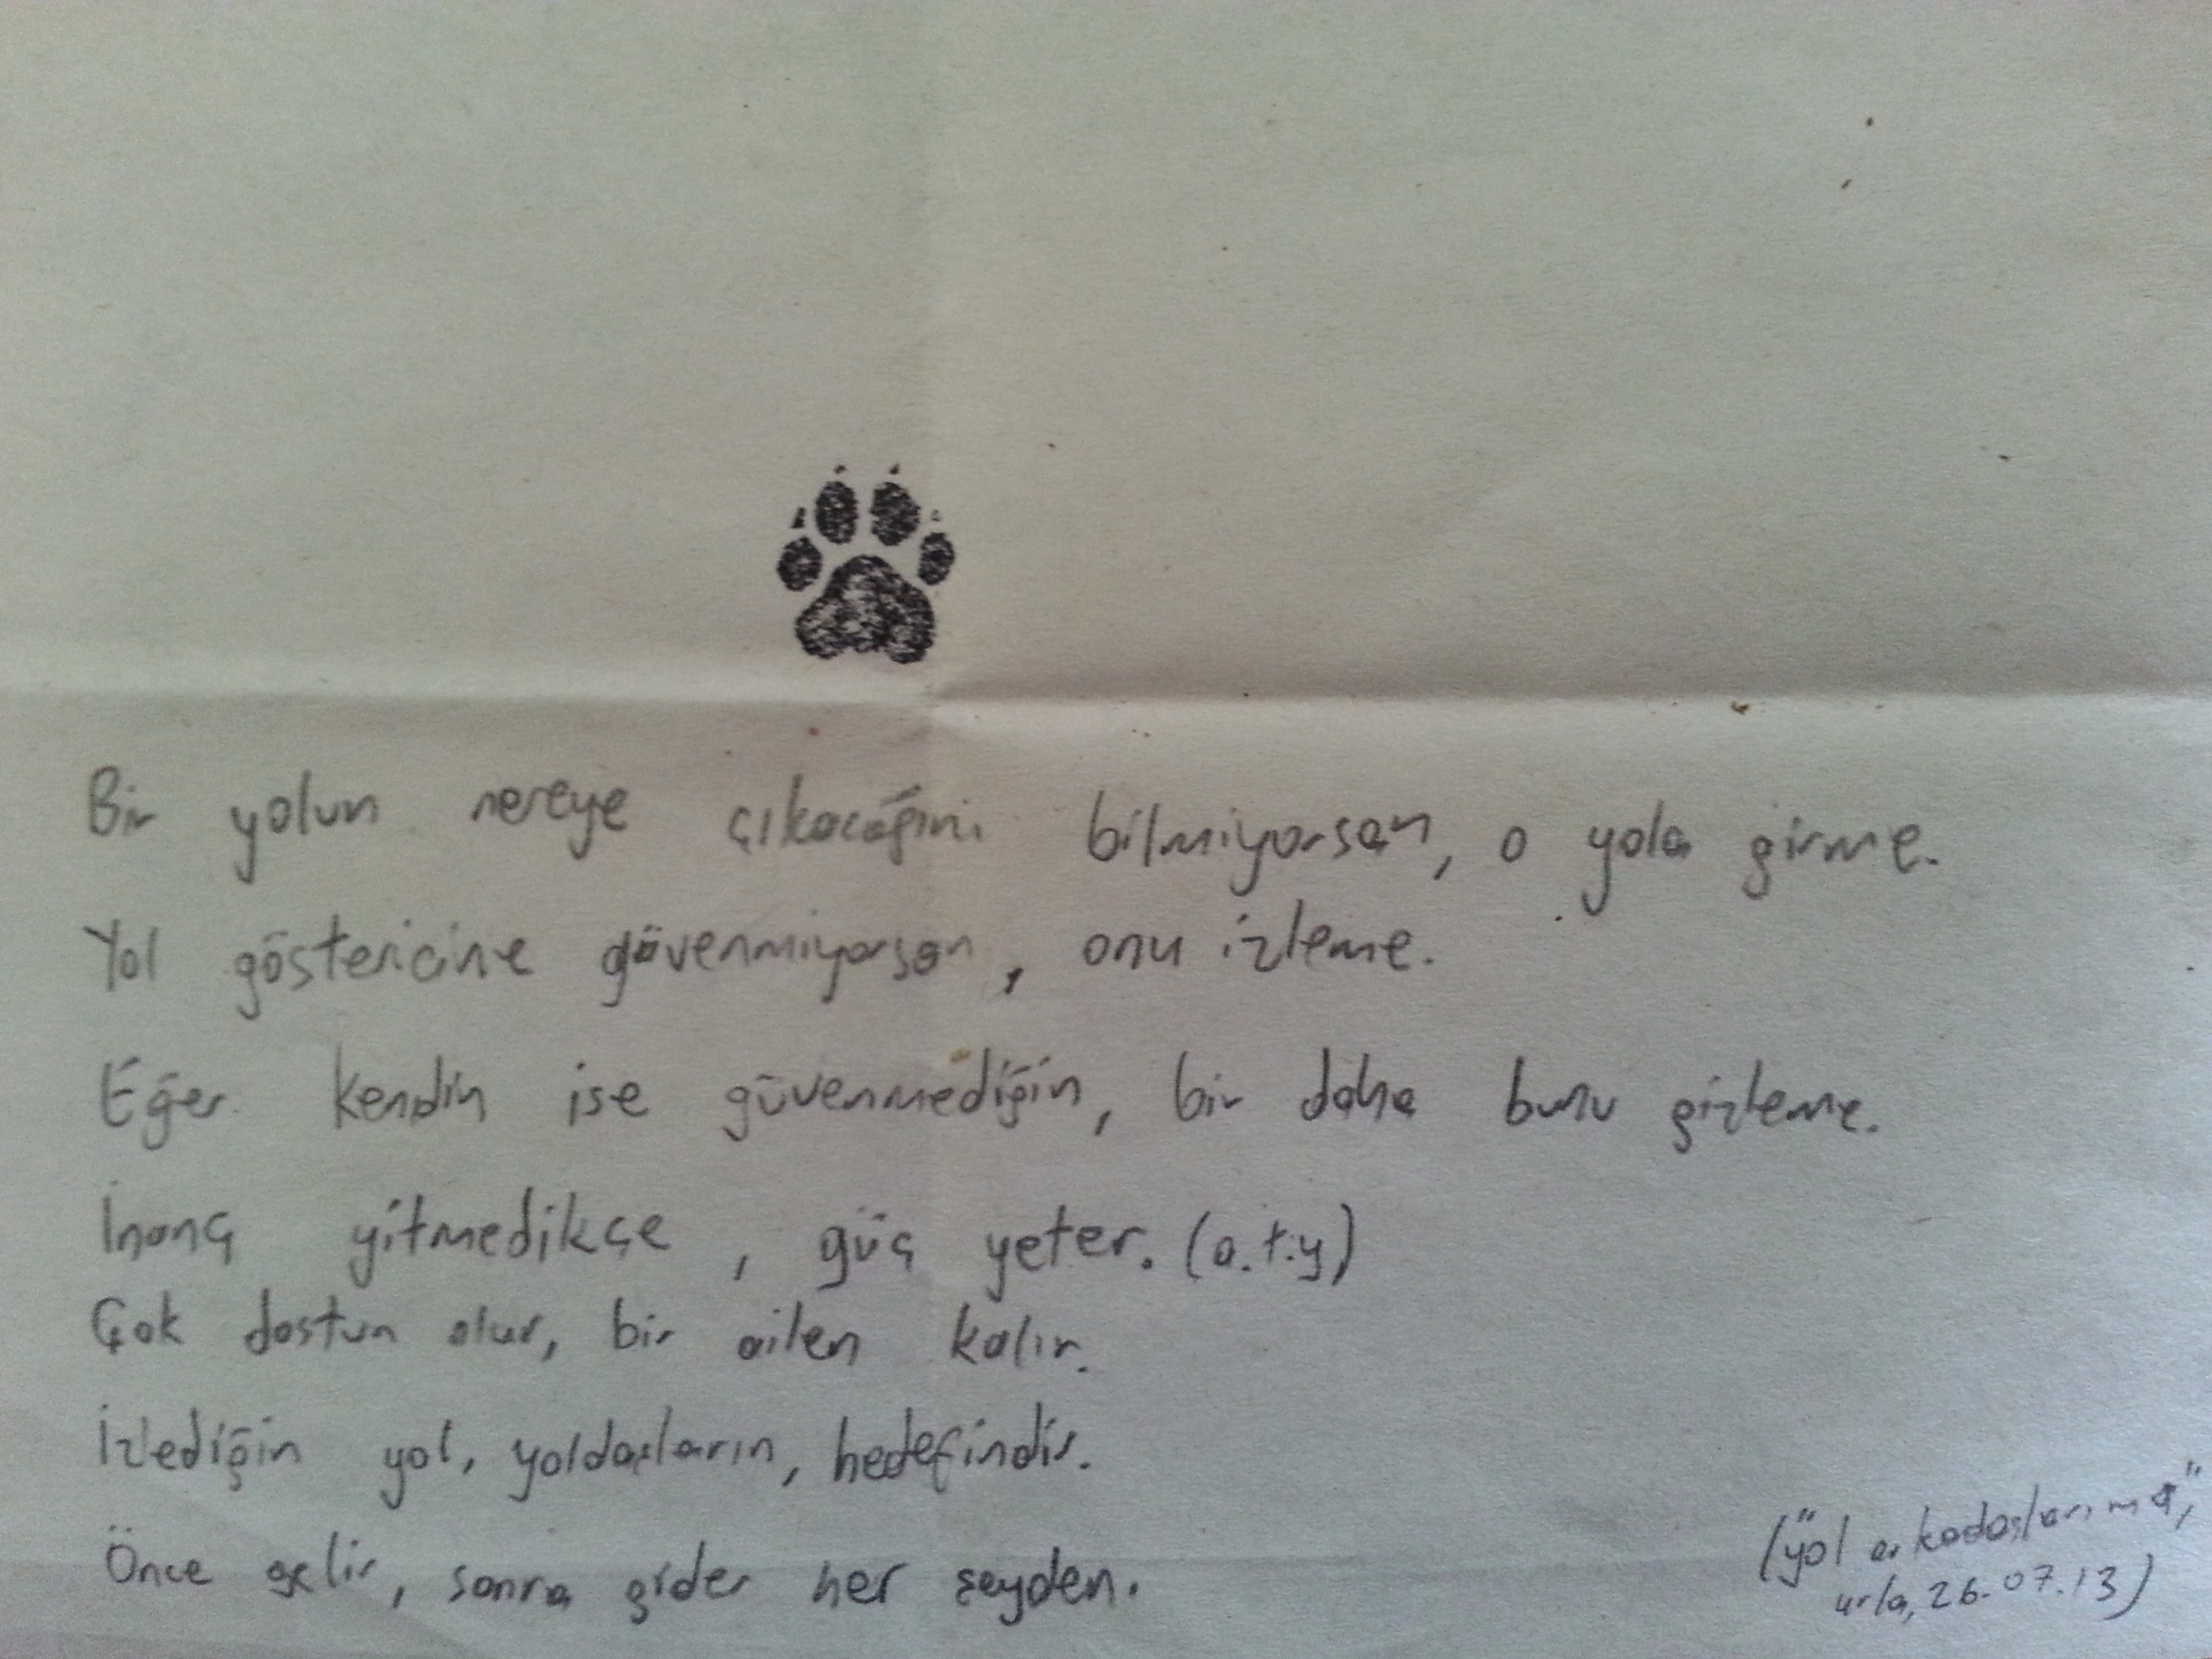 Bir yolun nereye çıkacağını bilmiyorsan, o yola girme.
Yol göstericine güvenmiyorsan, onu izleme.
Eğer kendin ise güvenmediğin, bir daha bunu gizleme.
İnanç yitmedikçe, güç yeter. (a.t.y)
Çok dostun olur, bir ailen kalır.
İzlediğin yol, yoldaşların, hedefindir.
Önce gelir, sonra gider her şeyden.
("yol arkadaşlarıma",
urla, 26.07.13)